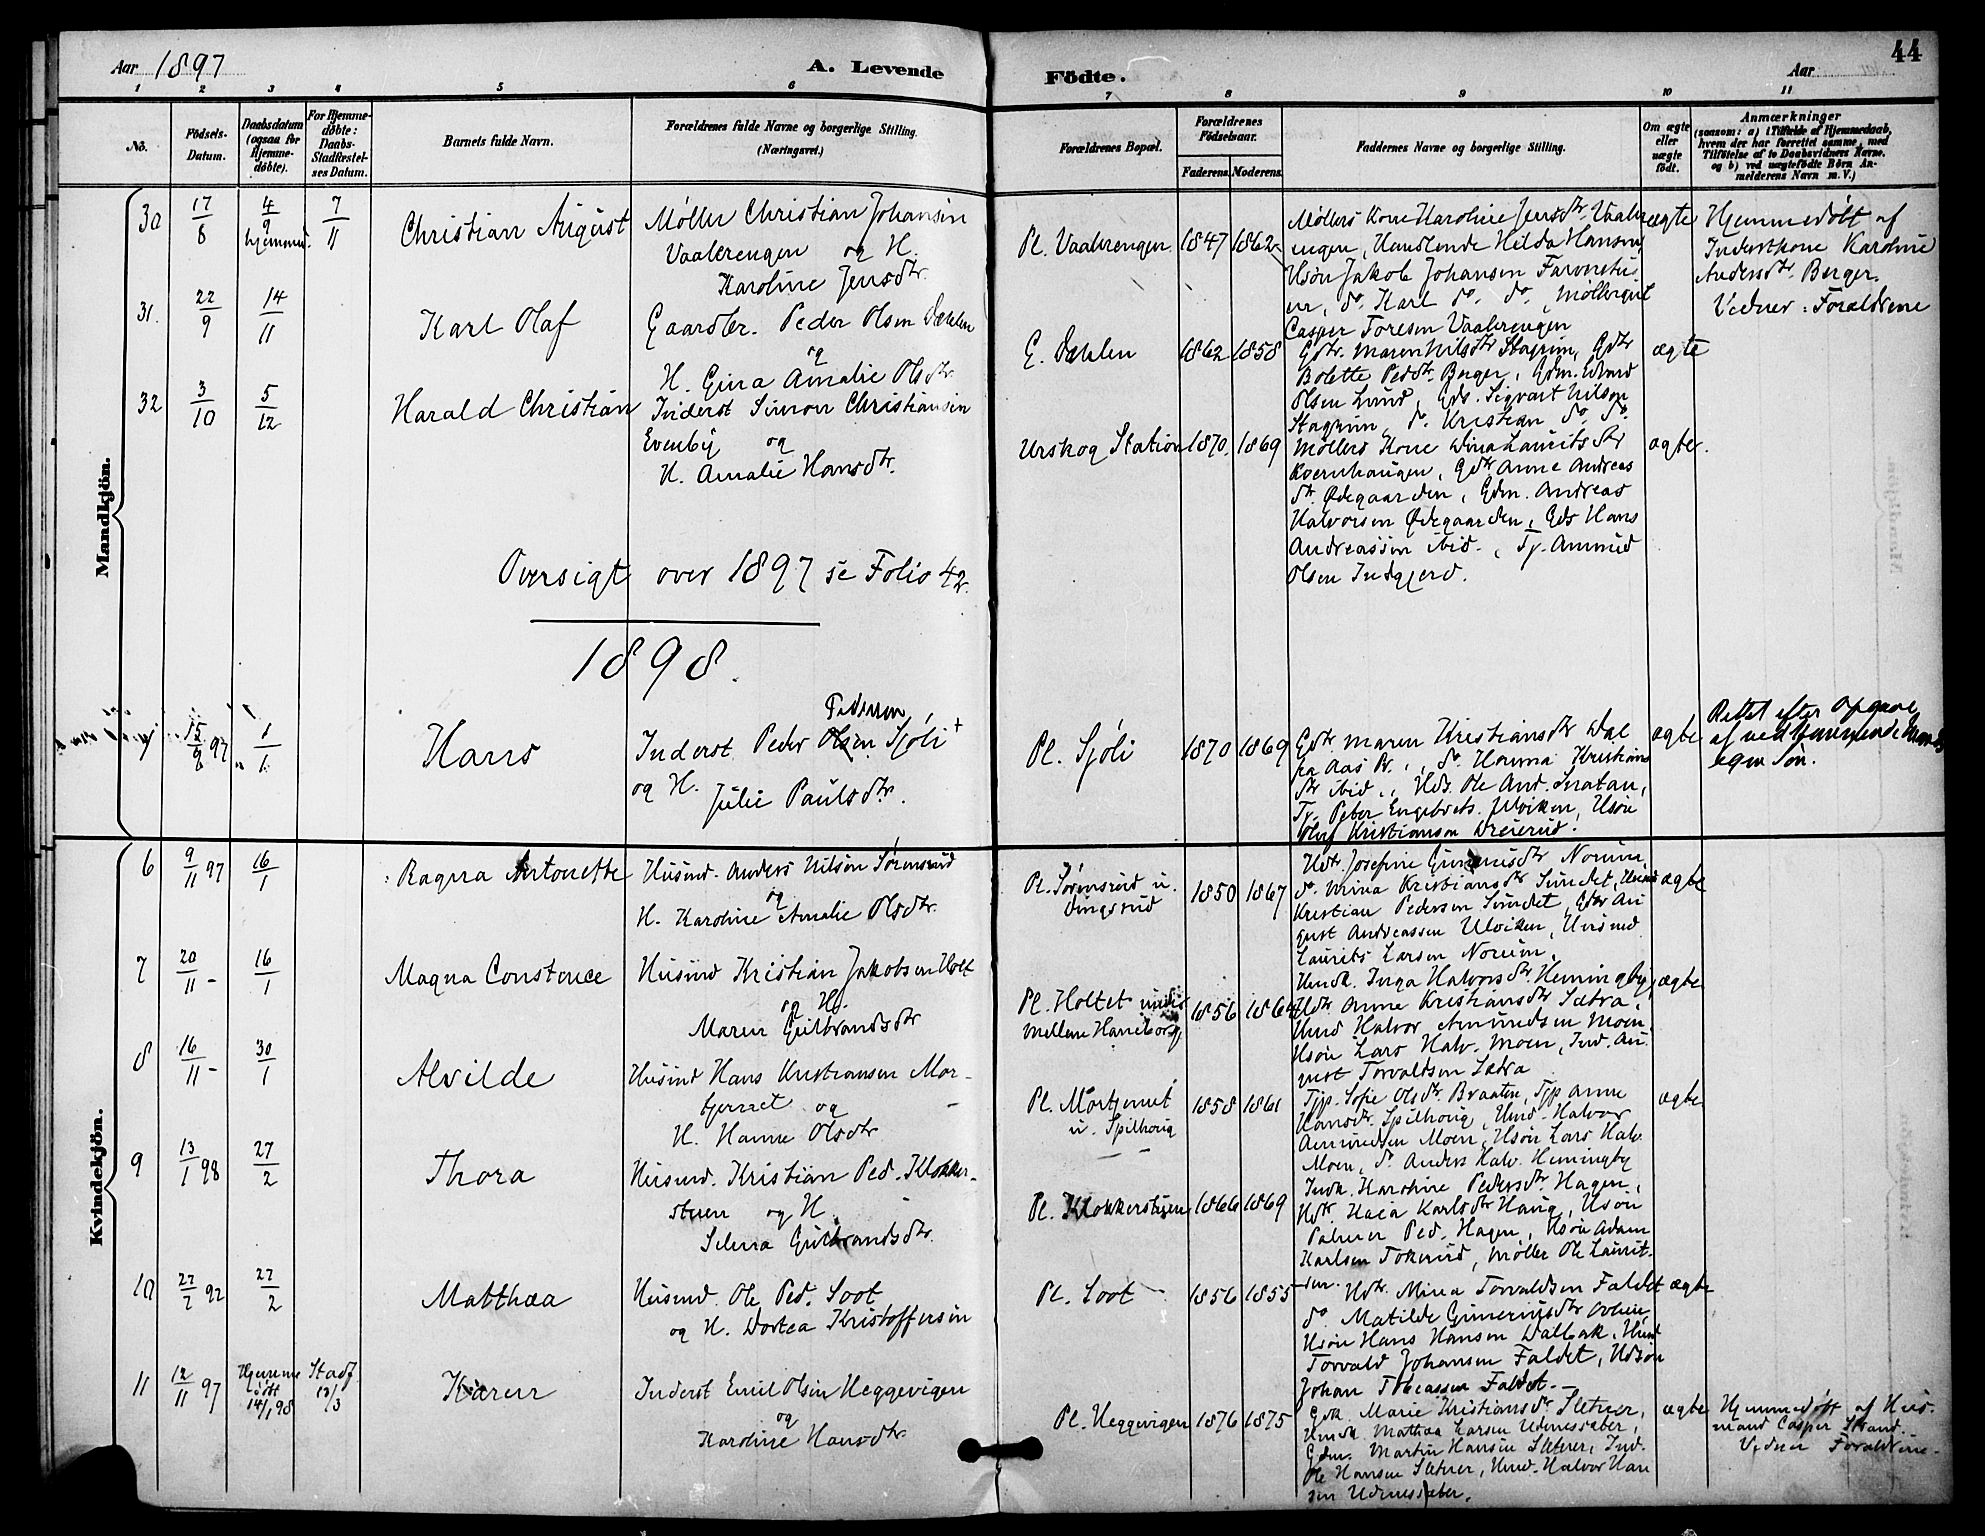 Aar 1897
A. Levende
Födte.
Aar
44
1 2 3 4 5 6 7 8 9 10 11
No.
Födsels-Datum.
Daabsdatum (ogsaa for Hjemme-døbte).
For Hjemme-døbte: Daabs-Stadfæstel-ses Datum.
Barnets fulde Navn.
Forældrenes fulde Navne og borgerlige Stilling.
(Næringsvei.)
Forældrenes Bopæl.
Forældrenes Födselsaar.
Faderens. Moderens.
Faddernes Navne og borgerlige Stilling.
Om ægte eller uægte födt.
Anmærkninger
(saasom: a) i Tilfælde af Hjemmedaab,
hvem der har forrettet samme, med
Tilföielse af to Daabsvidners Navne,
og b) ved uægtefödte Börn An-
melderens Navn m. V.)
Mandkjön.
30 17/8 4/9 hjemmed. 7/11 Christian August
Møller Christian Johansen
Vaalerengen og H.
Karoline Jensdtr.
Pl. Vaalerengen 1847 1862
Møllers Kone Karoline Jensdtr. Vaaler
engen, Hilda Hansen,
Jakob Johansen
Karl do. do.
Casper Toresen Vaalerengen
ægte
Hjemmedøbt af
Inderstkone Karoline
Andersdtr. Berger.
Vidner: Forældrene
31. 22/9 14/11 Karl Olaf
Gaardbr. Peder Olsen Dæhlen
og
H. Gina Amalie Olsdtr.
G. Dæhlen 1862 1858
Gdtr. Maren Nilsdtr. Gdtr.
Bolette Pedsdtr. Berger, Gdm. Edvard
Olsen Lund, Gds. Sigvart Nilsen
do. Kristian do. do.
ægte
32 3/10 5/12 Harald Christian
Inderst Simon Christiansen
Evenby og
H. Amalie Hansdtr.
Urskog Station 1870. 1869
Møllers Kone Dina Lauritsdtr
Kvernhaugen, Gdtr Anne Andreas
dtr. Ødegaarden, Gdm. Andreas
Halvorsen Ødegaarden, Gds Hans
Andreassen ibid., Tj. Ammud
Olsen Indgjerd.
ægte.
Oversigt over 1897 se Folio 42.
1898.
1 15/8 97 1/1 Hans
Pedersen
Inderst Peder Olsen Sjøli +
og H.
Julie Paulsdtr.
Pl. Sjøli 1870 1869
Gdtr Maren Kristiansdtr Dal
fra Aas Pr., do. Hanna Kristians
dtr ibid., Ole And.
Tj. Peter Engebrets. Ulviken, Usön
Oluf Kristiansen
ægte
Rettet efter Opgave
af vedkommende
egen Søn.
Kvindekjön.
6 9/11 97 16/1 Ragna Antonette
Husmd. Anders Nilsen Sørensrud
og
H. Karoline Amalie Olsdtr.
Pl. Sørensrud u.
Dingsrud 1850 1867
Hdtr. Josefine Norum,
do. Mina Kristiansdtr Sundet,
Kristian Pedersen Sundet, Au
gust Andreassen Ulviken, Husmd
Laurits Larsen Norum.
ægte
7 20/11 - 16/1 Magna Constence
Husmd Kristian Jakobsen Holt
og H.
Maren Gulbrandsdtr
Pl. Holtet
mellem Haneborg 1856 1864
Husmk. Inga Halvorsdtr Hemingby,
Hdtr Anne Kristiansdtr Sætra,
Hmd Halvor Amundsen Moen,
Usön Lars Halv. Moen, Ind. Au
gust Torvaldsen Sætra
ægte
8 16/11 - 30/1 Alvilde
Husmd Hans Kristiansen Mor-
tjernet og
H. Hanne Olsdtr
Pl. Mortjernet
u. Spilhoug 1858 1861
Tjp. Sofie Olsdtr. Braaten, Tjp Anne
Hansdtr. Spilhoug, Hmd. Halvor
Amundsen Moen, Usön Lars Halv.
Moen, do. Anders Halv. Hemingby
ægte
9 13/1 98 27/2 Thora
Husmd. Kristian Ped. Klokker-
stuen og H.
Selma Gulbrandsdtr.
Pl. Klokkerstuen 1866 1869
Indk. Karoline Pedersdtr. Hagen,
Hdtr. Karlsdtr Haug, Usön
Palmer Ped. Hagen, Usön Adam
Karlsen Tokerud, Møller Ole Laurit-
sen.
10 27/2 92 27/2 Matthæa
Husmd. Ole Ped. Soot
og H. Dortea Kristoffersen
Pl. Soot 1856 1855
Hdtr. Mina Torvaldsen Faldet
do. Matilde
Usön Hans Hansen Dalbak, Hmd
Torvald Johansen Faldet, Udsön
Johan Tobiassen Faldet.
ægte
11 12/11 97 Hjemme
døbt
14/1 98 Stadf
13/3 Karen
Inderst Emil Olsen Heggevigen
og
Karoline Hansdtr.
Pl. Heggevigen 1876 1875
Gdk. Marie Kristiansdtr Sletner,
Hmdk. Mathea Larsen
Gdm. Martin Hansen Sletner, Ind.
Ole Hansen Sletner, Hmd. Halvor Han
sen
ægte
Hjemmedøbt af Hus-
mand Casper Strand.
Vidner Forældrene.